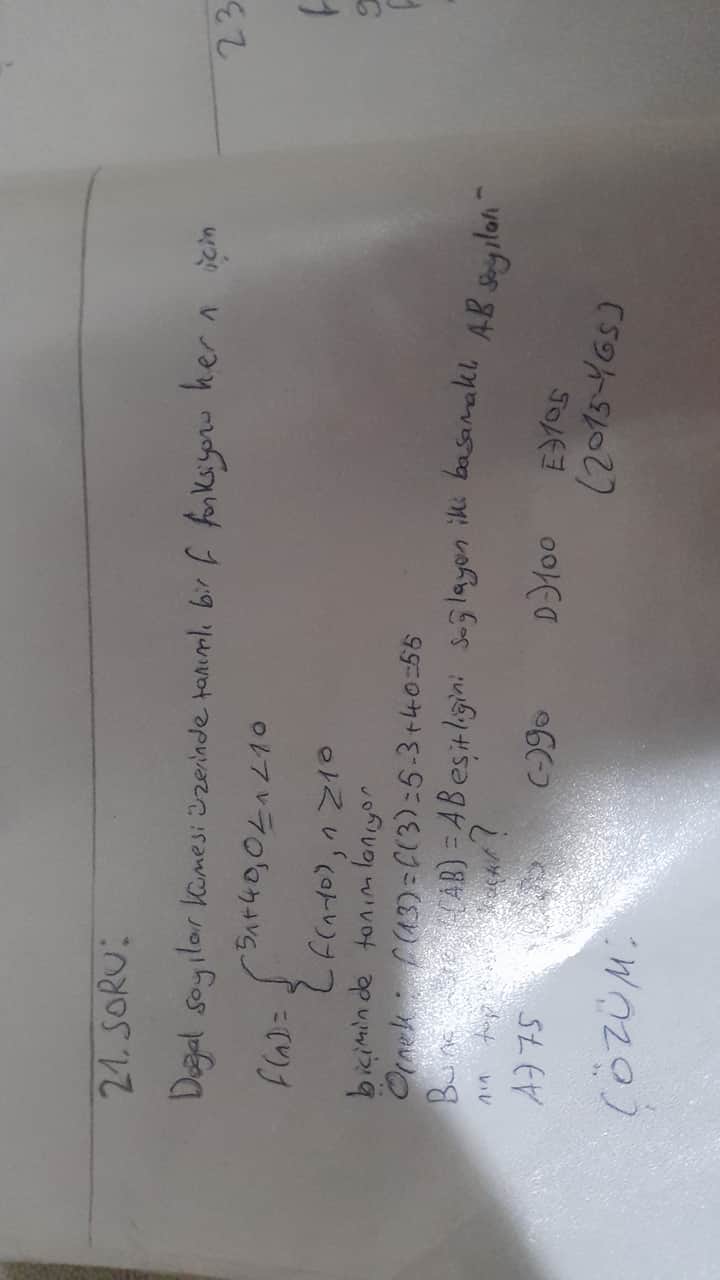 23
21. SORU:
Doğal sayılar kümesi üzerinde tanımlı bir f fonksiyonu her n için
f(n) = { 5n+40, 0 ≤ n < 10
f(n-10), n ≥ 10
biçiminde tanımlanıyor
Örnek: f(13) = f(3) = 5.3+40=55
f(AB) = AB eşitliğini sağlayan iki basamaklı AB sayıları-
nın
A-)75 C-)90 D-)100 E-)105
(2015-YGS)
ÇÖZÜM: